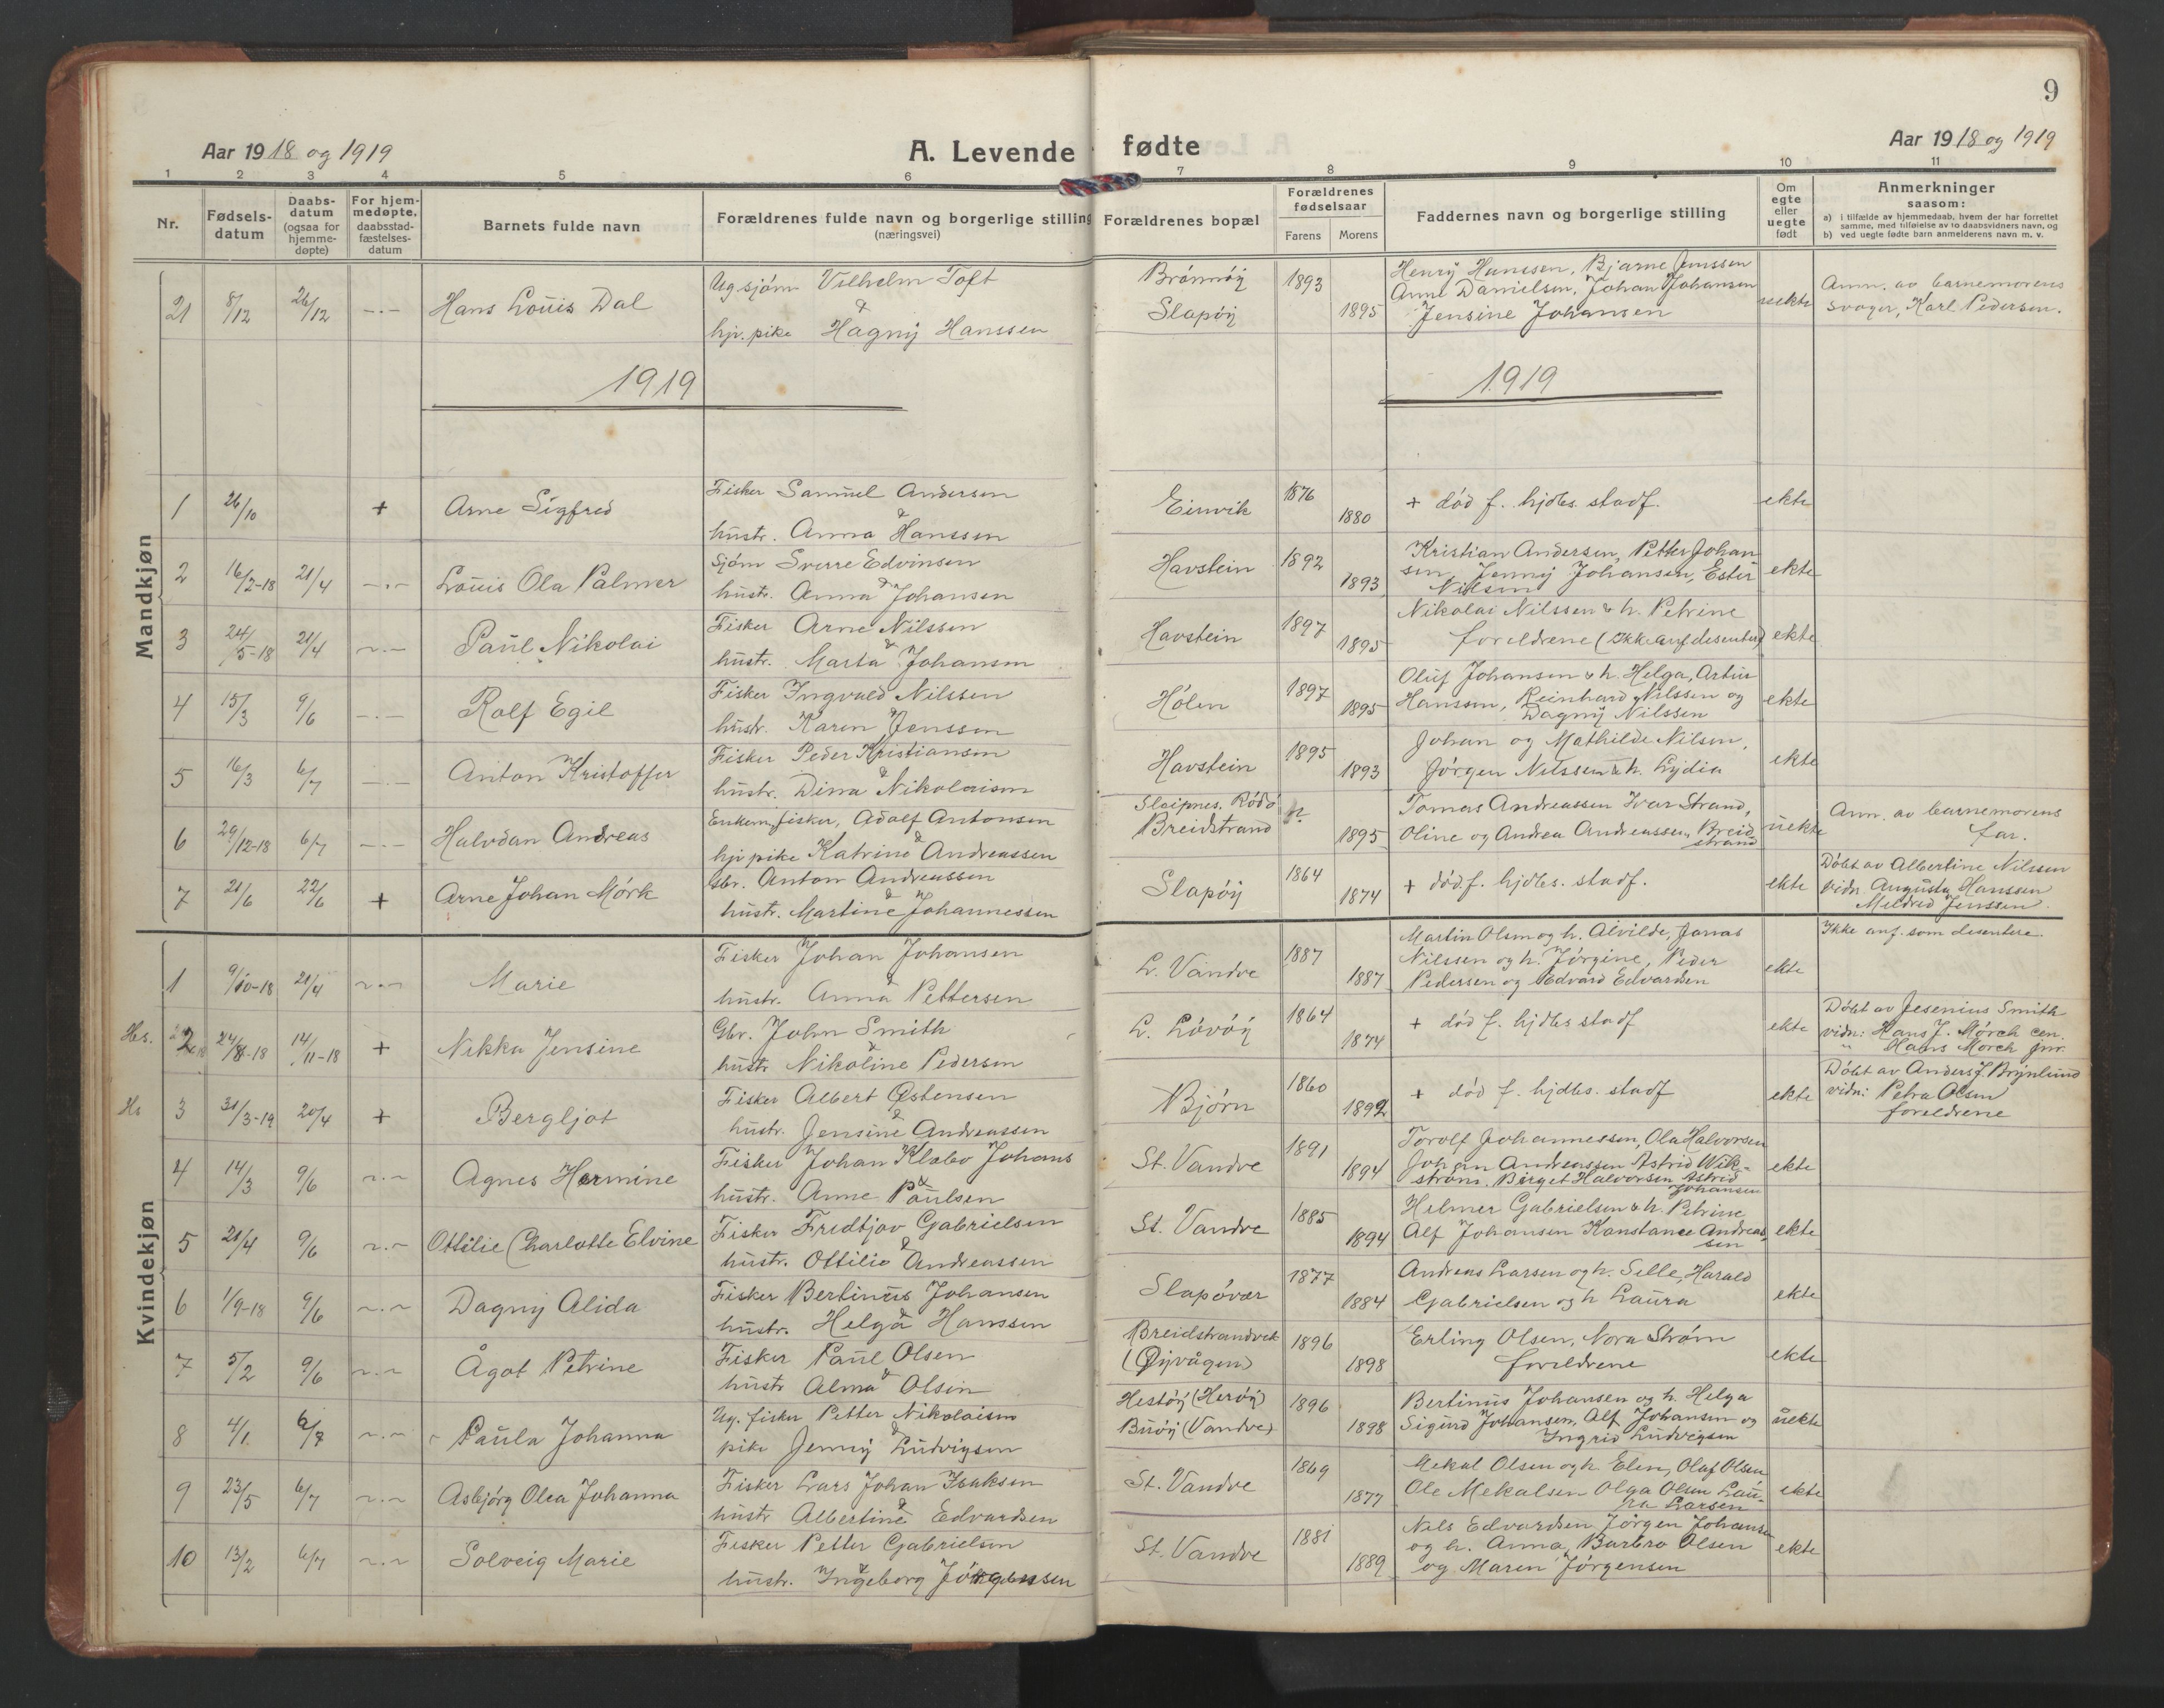 9
Aar 1918 og 1919
A. Levende fødte
Aar 1918 og 1919
1 2 3 4 5 6 7 8 9 10 11
Nr.
Fødsels-
datum
Daabs-
datum
(ogsaa for
hjemme-
døpte)
For hjem-
medøpte,
daabsstad-
fæstelses-
datum
Barnets fulde navn
Forældrenes fulde navn og borgerlige stilling
(næringsvei)
Forældrenes bopæl
Forældrenes
fødselsaar
Farens Morens
Faddernes navn og borgerlige stilling
Om
egte
eller
uegte
født
Anmerkninger
saasom:
a) i tilfælde av hjemmedaab, hvem der har forrettet
samme, med tilføielse av to daabsvidners navn, og
b) ved uegte fødte barn anmelderens navn m. v.
21 8/12 26/12 -.- Hans Louis Dal
Ugsjøm Vilhelm Toft
&
hjv. pike Hagny Hanssen
Brønnøy
Slapøy
1893
1895
Henry Hanssen, Bjarne Jenssen
Anne Danielsen, Johan Johansen
Jensine Johansen
uekte
Anm. av barnemorens
svoger, Karl Pedersen.
1919
1919
Mandkjøn
1 26/10 + Arne Sigfred
Fisker Samuel Andersen
&
hustr. Anna Hanssen
Eirvik
1876
1880
+ død f. hjdbs. stadf.
ekte
2 16/2-18 21/4 -.- Louis Ola Palmer
Sjøm Sverre Edvinsen
&
hustr. Anna Johansen
Havstein
1892
1893
Kristian Andersen, Petter Johan
sen, Jenny Johansen, Ester
Nilsen
ekte
3 24/5-18 21/4 -.- Paul Nikolai
Fisker Arne Nilssen
&
hustr. Marta Johansen
Havstein
1897
1895
Nikolai Nilssen & h. Petrine
foreldrene (Ikke anf desenter)
ekte
4 15/3 9/6 -.- Rolf Egil
Fisker Ingvald Nilssen
&
hustr. Karen Jenssen
Hølen
1897
1895
Oluf Johansen & h. Helga, Artur
Hanssen, Reinhard Nilssen og
Dagny Nilssen
ekte
5 16/3 6/7 -.- Anton Kristoffer
Fisker Peder Kristiansen
&
hustr. Dina Nikolaisen
Havstein
1895
1893
Johan og Mathilde Nilsen,
Jørgen Nilssen & h. Lydia
ekte
6 29/12-18 6/7 -.- Halvdan Andreas
Enkem, fisker, Adolf Antonsen
&
hjv pike Katrine Andreassen
Sleipnes. Rødø
Breidstrand
1895
Tomas Andreassen Ivar Strand,
Oline og Andrea Andreassen, Breid
strand
uekte
Anm. av barnemorens
far.
7 21/6 22/6 + Arne Johan Mørk
Gbr. Anton Andreassen
&
hustr. Martine Johannessen
Slapøy
1864
1874
+ død f. hjdbs. stadf.
ekte
Døbt av Albertine Nilssen
vidn. Augusta Hanssen
Meldred Jenssen.
Kvindekjøn
1 9/10-18 21/4 -.- Marie
Fisker Johan Johansen
&
hustr. Anna Pettersen
L. Vandve
1887
1887
Martin Olsen og h. Alvilde, Jonas
Nilssen og h. Jørgine, Peder
Pedersen og Edvard Edvardsen
ekte
Ikke anf. som desentere
Hs. 2 24/8-18 14/11-18 + Nikka Jensine
Gbr. John Smith
&
hustr Nikoline Pedersen
L. Løvøy
1864
1874
+ død f. hjdbs stadf
ekte
Døbt av Jesenius Smith
vidn: Hans J. Mørch cen.
" Hans Mørch jnr.
Hs 3 31/3-19 20/4 + Bergljot
Fisker Albert Østensen
&
hustr. Jensine Andreassen
Bjørn
1860
1892
+ død f. hjdbs. stadf
ekte
Døbt av Anders J. Brynlund
vidn: Petra Olsen
foreldrene
4 14/3 9/6 -.- Agnes Hermine
Fisker Johan Klæbo Johans
&
hustr. Anne Paulsen
St. Vandve
1891
1894
Torolf Johannessen, Ola Halvorsen
Johan Andreassen Astrid Wik-
strøm. Birget Halvorsen Astrid
Johansen
ekte
5 21/4 9/6 -.- Ottilie Charlotte Elvine
Fisker Fredtjov Gabrielsen
&
hustr. Ottilie Andreassen
St. Vandve
1885
1894
Helmer Gabrielsen & h. Petrine
Alf Johansen Konstance Andreas
sen
ekte
6 1/9-18 9/6 -.- Dagny Alida
Fisker Bertinus Johansen
&
hustr. Helga Hanssen
Slapøvær
1877
1884
Andreas Larsen og h. Selle, Harald
Gabrielsen og h Laura
ekte
7 5/2 9/6 -.- Ågot Petrine
Fisker Paul Olsen
&
hustr Alma Olsen
Breidstrandvek
(Øyvågen)
1896
1898
Erling Olsen, Nora Strøm
foreldrene
ekte
8 4/1 6/7 -.- Paula Johanna
Ug. fisker Petter Nikolaisen
&
pike Jenny Ludvigsen
Hestøy (Herøy)
Buøy (Vandve)
1896
1898
Bertinus Johansen og h. Helga
Sigurd Johansen, Alf Johansen og
Ingrid Ludvigsen
uekte
9 23/5 6/7 -.- Asbjørg Olea Johanna
Fisker Lars Johan Isaksen
&
hustr Albertine Edvardsen
St. Vandve
1869
1877
Mekal Olsen og h. Elen, Olaf Olsen
Ole Mekalsen Olga Olsen Lau-
ra Larsen
ekte
10 13/2 6/7 -.- Solveig Marie
Fisker Petter Gabrielsen
&
hustr. Ingeborg Jørgensen
St. Vandve
1881
1889
Nels Edvardsen Jørgen Johansen
og h. Anna, Barbro Olsen
og Maren Jørgensen
ekte